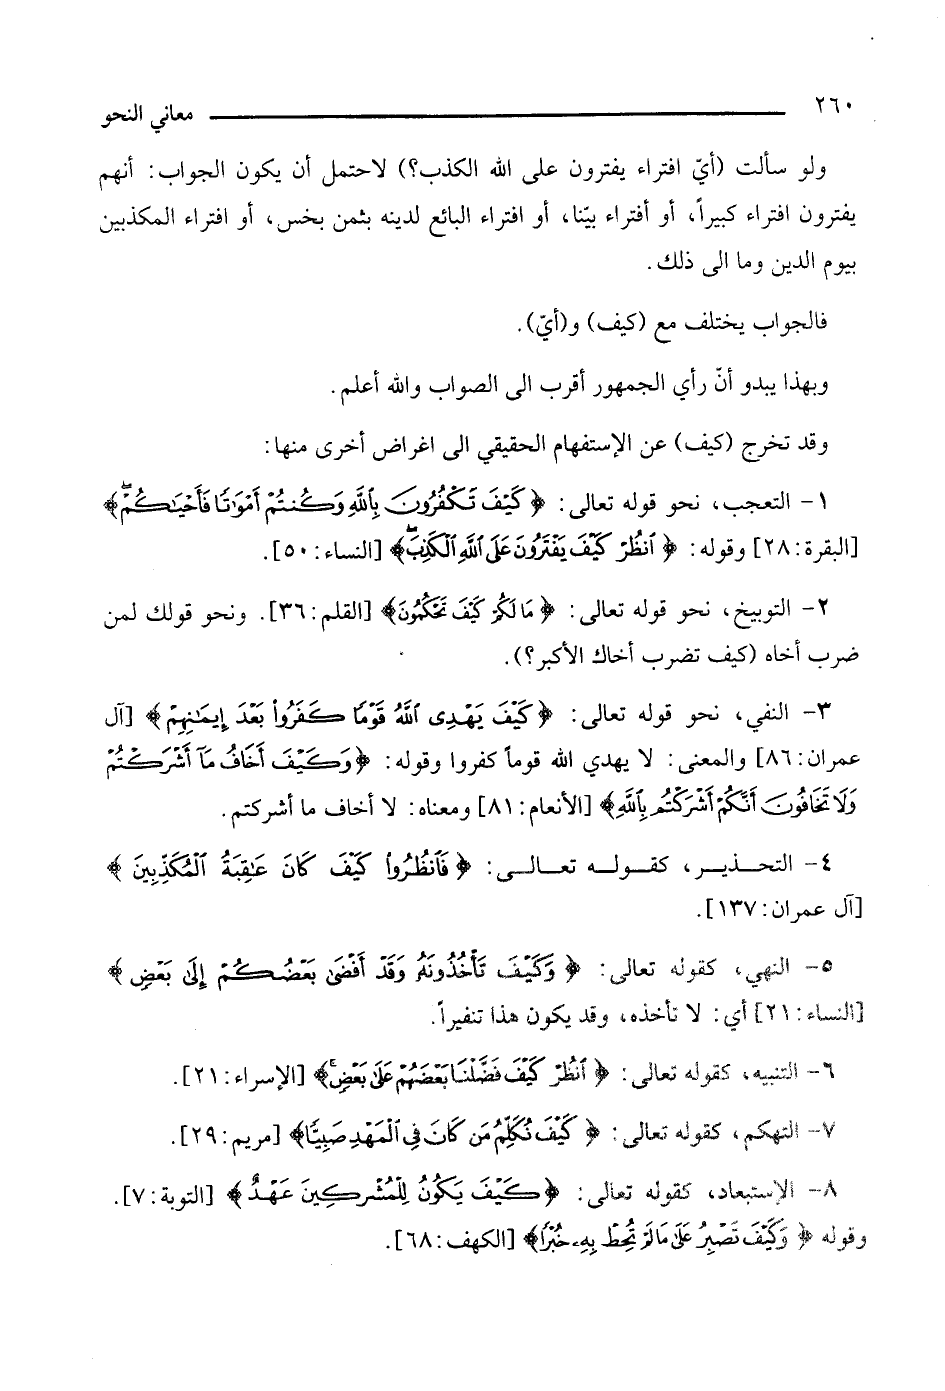 ٢٦٠ معاني النحو
ولو سألت (أيّ افتراء يفترون على الله الكذب؟) لاحتمل أن يكون الجواب: أنهم
يفترون افتراء كبيراً، أو أفتراء بيّنا، أو افتراء البائع لدينه بثمن بخس، أو افتراء المكذبين
بيوم الدين وما الى ذلك.
فالجواب يختلف مع (كيف) و(أيّ).
وبهذا يبدو أنّ رأي الجمهور أقرب الى الصواب والله أعلم.
وقد تخرج (كيف) عن الإستفهام الحقيقي الى اغراض أخرى منها:
١- التعجب، نحو قوله تعالى: ﴿كَيْفَ تَكْفُرُونَ بِٱللَّهِ وَكُنتُمْ أَمْوَٰتًا فَأَحْيَٰكُمْۖ﴾
[البقرة:٢٨] وقوله: ﴿ٱنظُرْ كَيْفَ يَفْتَرُونَ عَلَى ٱللَّهِ ٱلْكَذِبَۖ﴾ [النساء: ٥٠].
٢- التوبيخ، نحو قوله تعالى: ﴿مَا لَكُمْ كَيْفَ تَحْكُمُونَ﴾ [القلم:٣٦]. ونحو قولك لمن
ضرب أخاه (كيف تضرب أخاك الأكبر؟).
٣- النفي، نحو قوله تعالى: ﴿كَيْفَ يَهْدِى ٱللَّهُ قَوْمًا كَفَرُوا۟ بَعْدَ إِيمَٰنِهِمْ﴾ [آل
عمران:٨٦] والمعنى: لا يهدي الله قوماً كفروا وقوله: ﴿وَكَيْفَ أَخَافُ مَآ أَشْرَكْتُمْ
وَلَا تَخَافُونَ أَنَّكُمْ أَشْرَكْتُم بِٱللَّهِ﴾ [الأنعام:٨١] ومعناه: لا أخاف ما أشركتم.
٤- التحـذيـر، كقـولـه تعـالـى: ﴿فَٱنظُرُوا۟ كَيْفَ كَانَ عَٰقِبَةُ ٱلْمُكَذِّبِينَ﴾
[آل عمران:١٣٧].
٥- النهي، كقوله تعالى: ﴿وَكَيْفَ تَأْخُذُونَهُۥ وَقَدْ أَفْضَىٰ بَعْضُكُمْ إِلَىٰ بَعْضٍ﴾
[النساء:٢١] أي: لا تأخذه، وقد يكون هذا تنفيراً.
٦- التنبيه، كقوله تعالى: ﴿ٱنظُرْ كَيْفَ فَضَّلْنَا بَعْضَهُمْ عَلَىٰ بَعْضٍۚ﴾ [الإسراء:٢١].
٧- التهكم، كقوله تعالى: ﴿كَيْفَ نُكَلِّمُ مَن كَانَ فِى ٱلْمَهْدِ صَبِيًّا﴾ [مريم:٢٩].
٨- الإستبعاد، كقوله تعالى: ﴿كَيْفَ يَكُونُ لِلْمُشْرِكِينَ عَهْدٌ﴾ [التوبة:٧].
وقوله ﴿وَكَيْفَ تَصْبِرُ عَلَىٰ مَا لَمْ تُحِطْ بِهِۦ خُبْرًا﴾ [الكهف:٦٨].